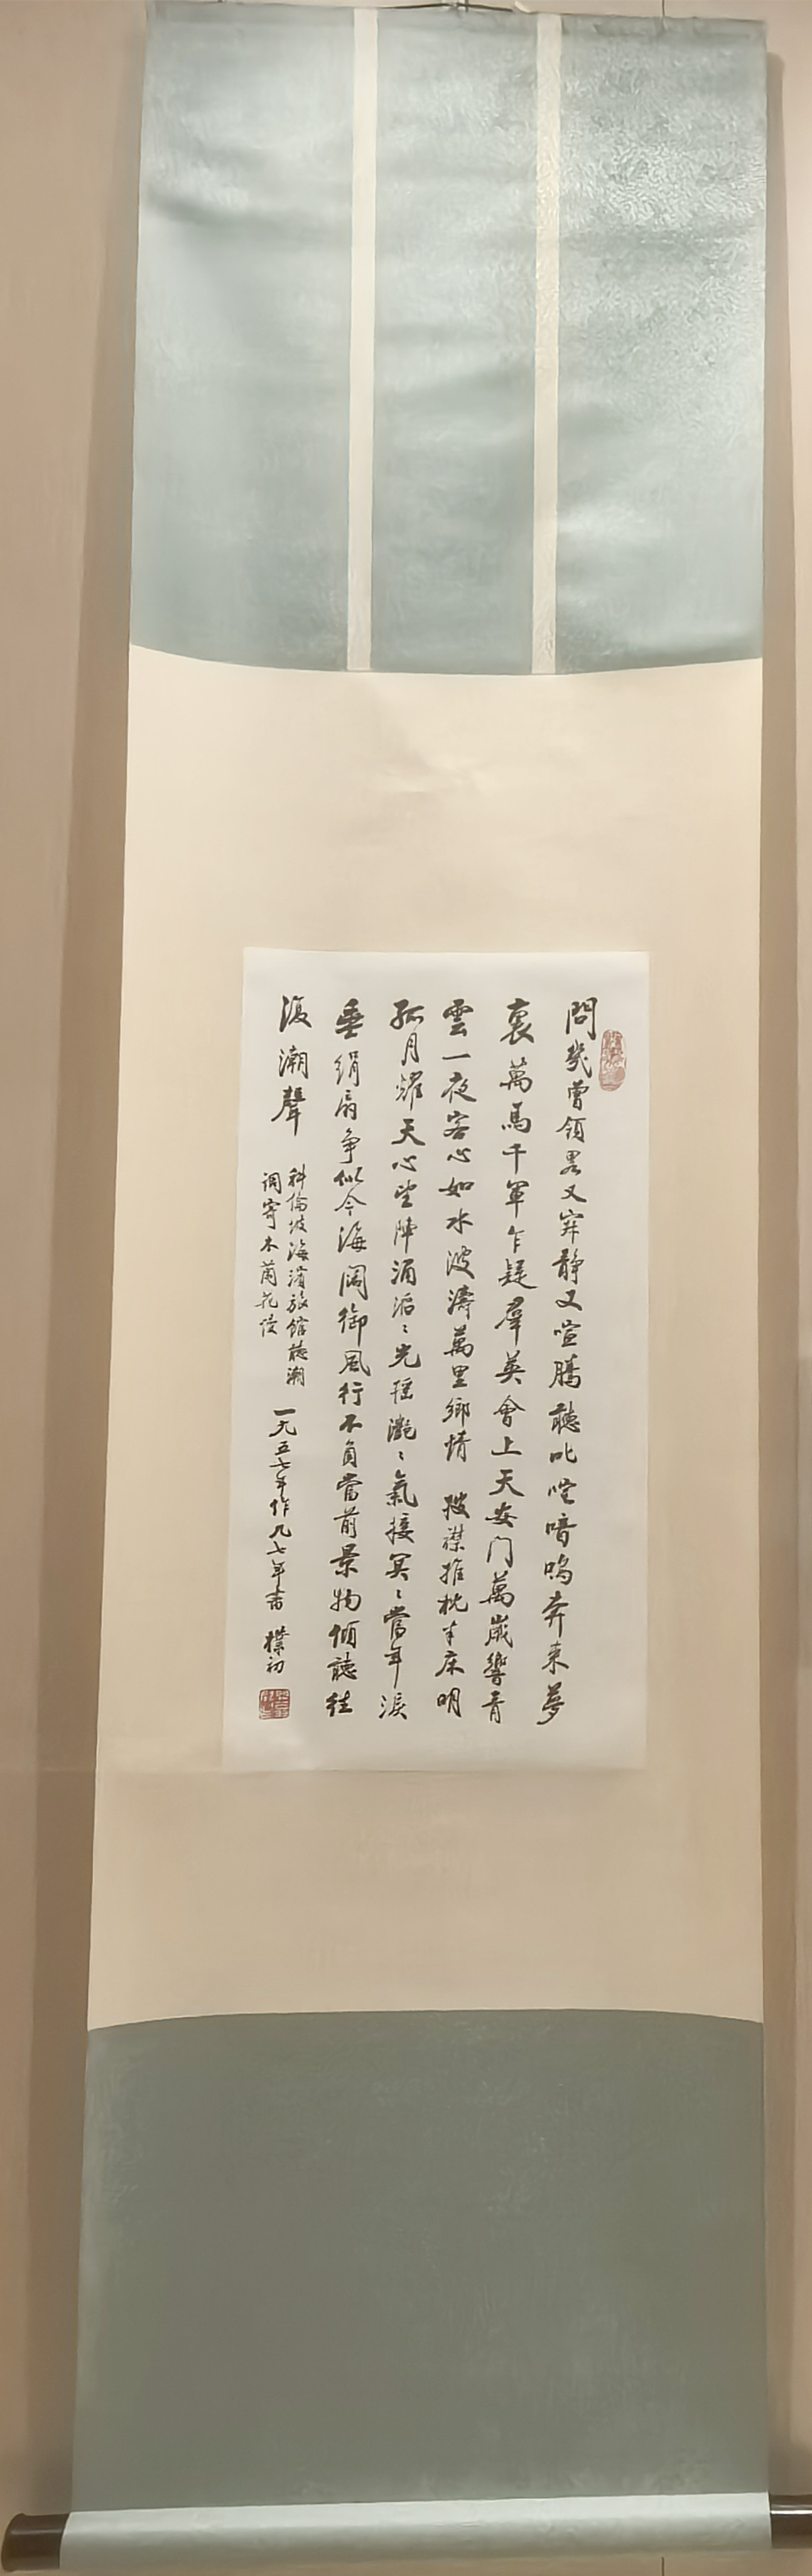 問幾曾領略又寂靜又喧騰聽叱咤喑嗚奔來夢
裏萬馬千軍乍疑羣英會上天安门萬歲響青
雲一夜客心如水波濤萬里鄉情 披襟推枕半床明
孤月耀天心望陣陣涌滔滔光摇灔灔氣接冥冥當年淚
垂绢扇争似今海阔御風行不負當前景物倾聽往
復潮聲
科倫坡海濱旅館聽潮
调寄木蘭花慢
一九五七年作九七年書 樸初